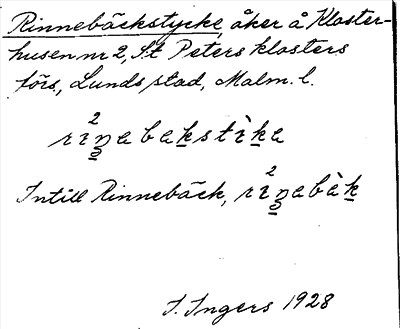 Rinnebäckstycke, åker å Kloster-
husen nr 2, S:t Peters klosters
förs, Lunds stad, Malm. l.
2
rin̥abakstìka
Intill Rinnebäck, rin̥abὲk
2
I. Ingers 1928